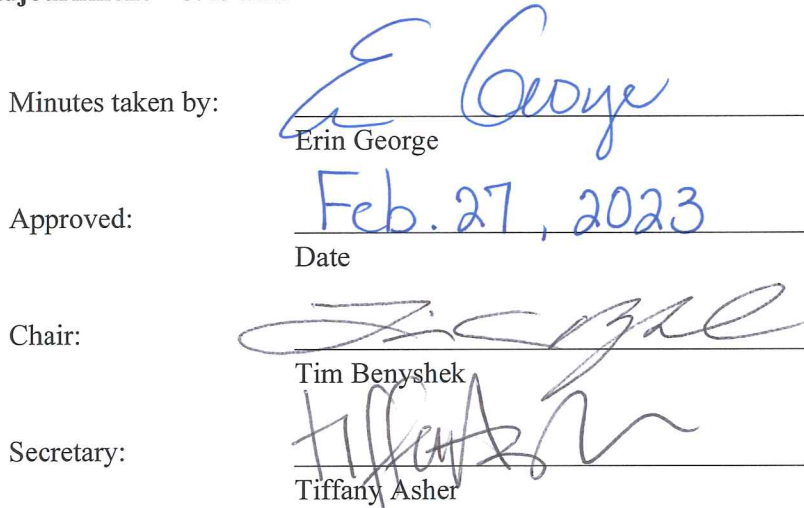 Minutes taken by: E George
Erin George
Approved: Feb. 27, 2023
Date
Chair:
Tim Benyshek
Secretary:
Tiffany Asher